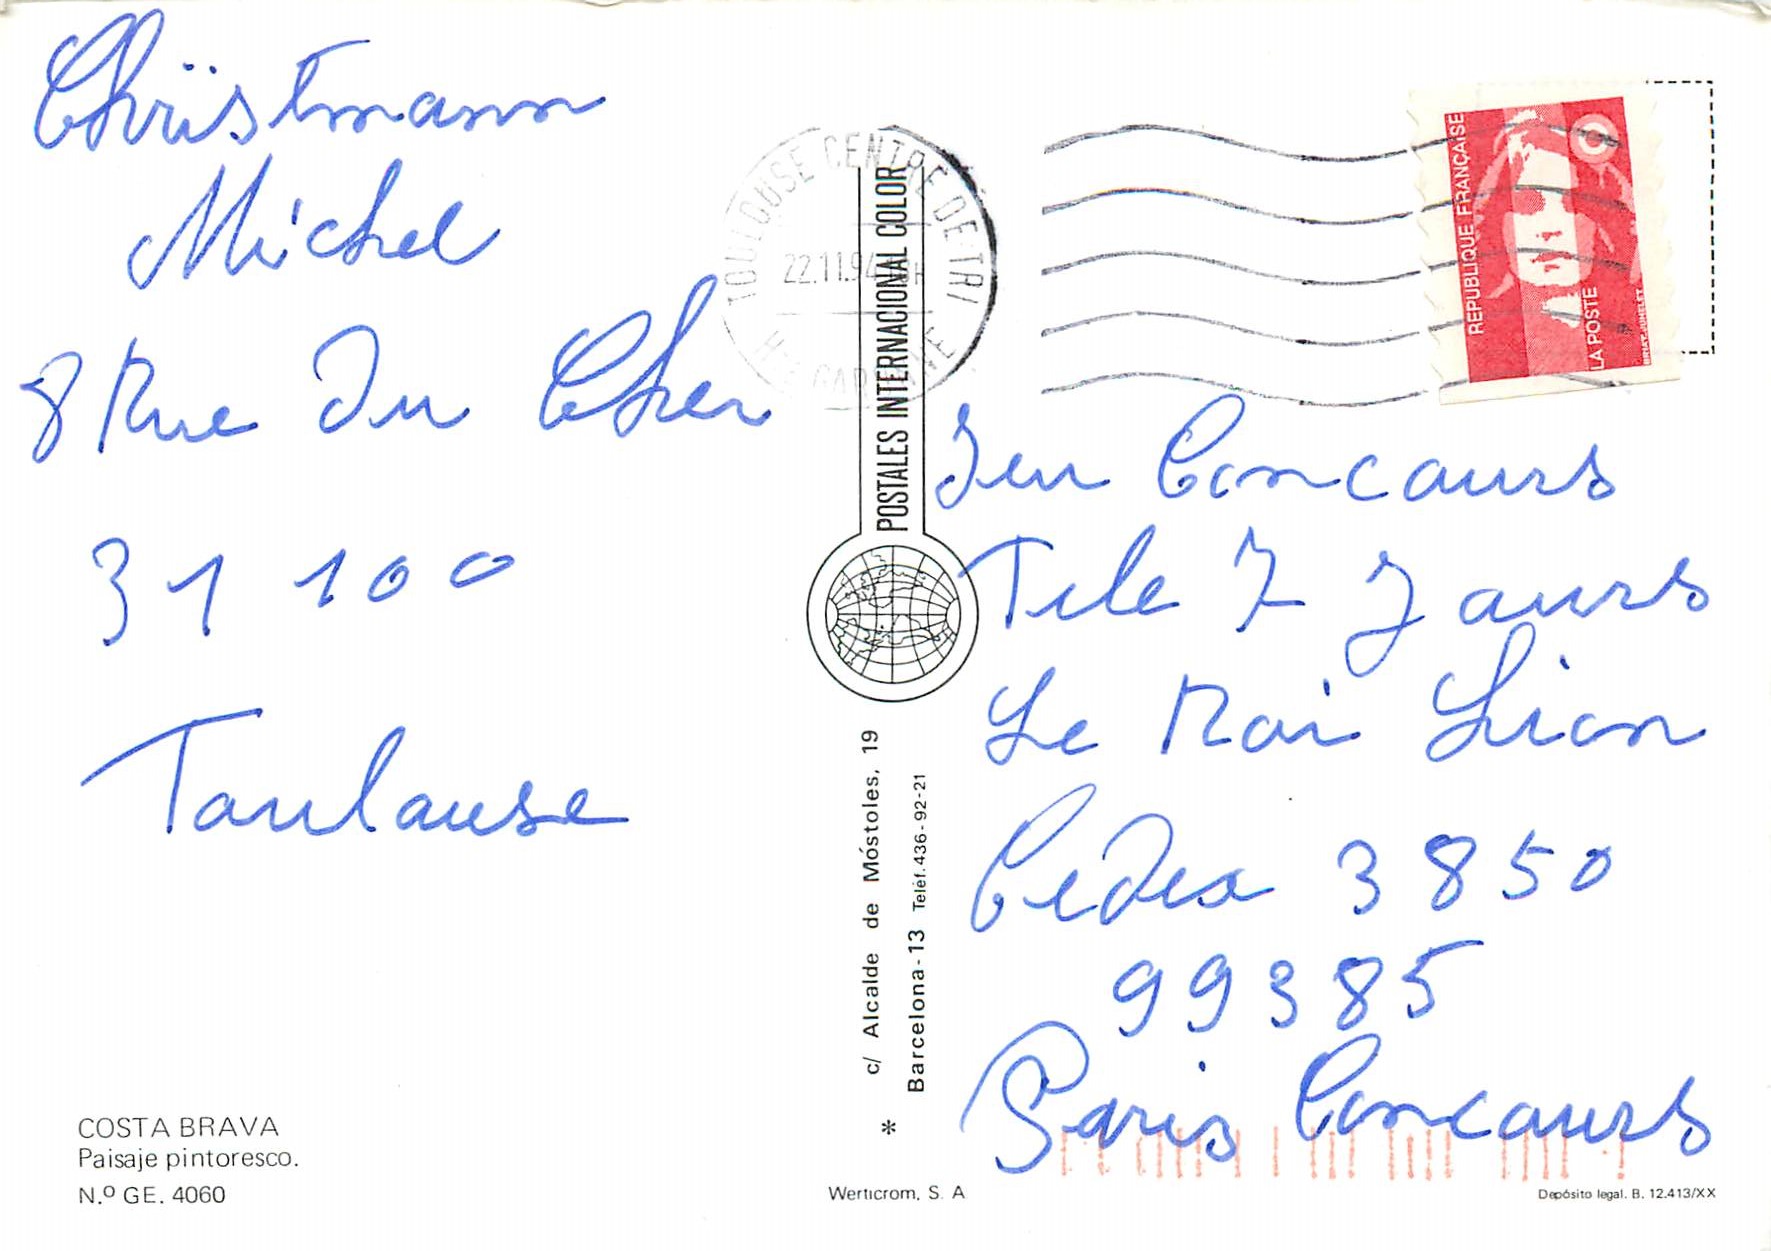 Christmann
Michel
8 Rue Du Cher
31 100
Toulouse
COSTA BRAVA
Paisaje pintoresco.
N.º GE. 4060
TOULOUSE CENTRE DE TRI
22.11.94
HTE GARONNE
POSTALES INTERNACIONAL COLOR
c/ Alcalde de Móstoles, 19
Barcelona-13 Teléf. 436-92-21
*
Werticrom, S. A
REPUBLIQUE FRANÇAISE
LA POSTE
BRIAT-JUMELET
Jeu Concours
Tele 7 Jours
Le Roi Lion
Cedex 3850
99385
Paris Concours
Depósito legal. B. 12.413/XX